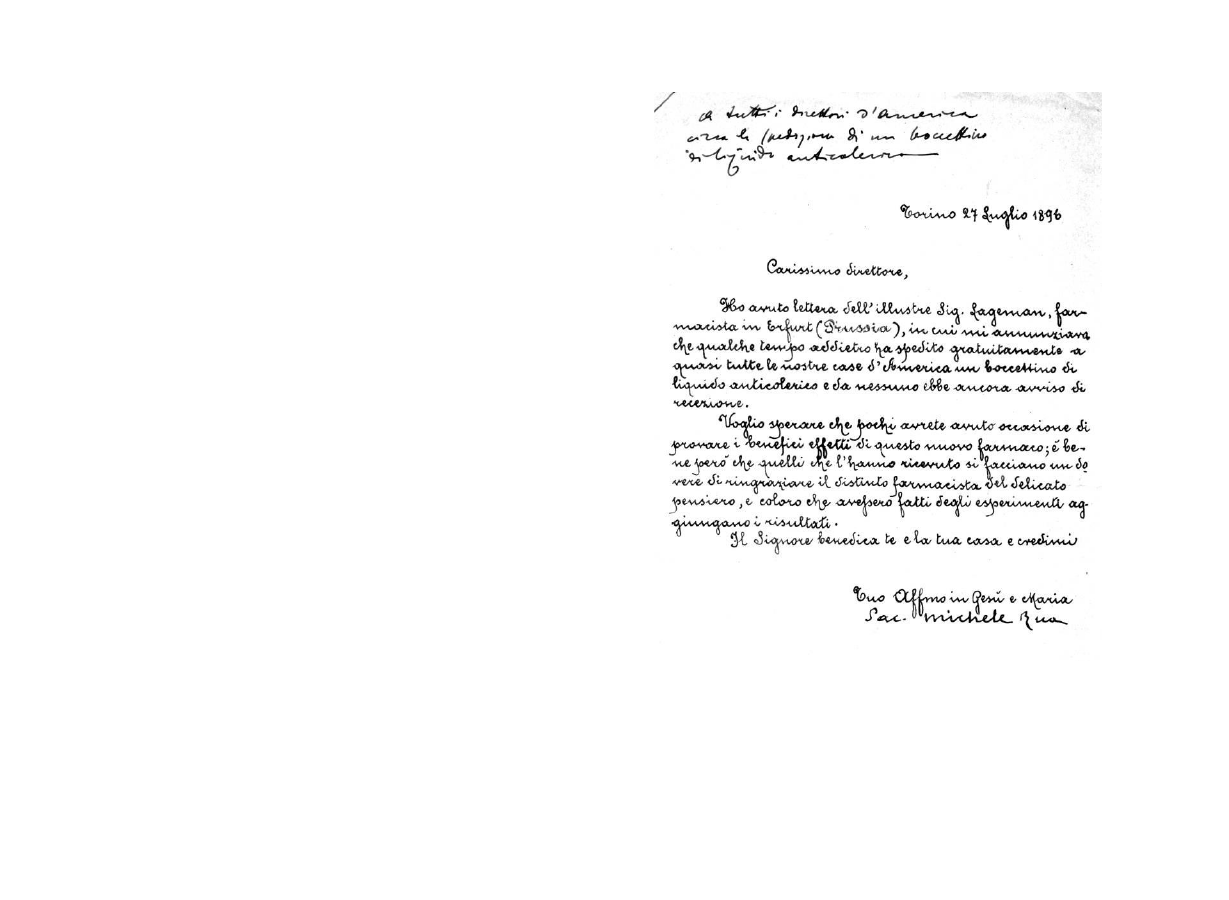 a tutti i direttori d'America
circa la spedizione di un boccettino
di liquido anticolerico
Torino 27 Luglio 1896
Carissimo direttore,
Ho avuto lettera dell'illustre Sig. Lageman, far-
macista in Erfurt (Prussia), in cui mi annunziava
che qualche tempo addietro ha spedito gratuitamente a
quasi tutte le nostre case d'America un boccettino di
liquido anticolerico e da nessuno ebbe ancora avviso di
recezione.
Voglio sperare che pochi avrete avuto occasione di
provare i benefici effetti di questo nuovo farmaco; é be-
ne peró che quelli che l'hanno ricevuto si facciano un do
vere di ringraziare il distinto farmacista del delicato
pensiero, e coloro che avessero fatti degli esperimenti ag-
giungano i risultati.
Il Signore benedica te e la tua casa e credimi
Tuo Affmo in Gesù e Maria
Sac. Michele Rua